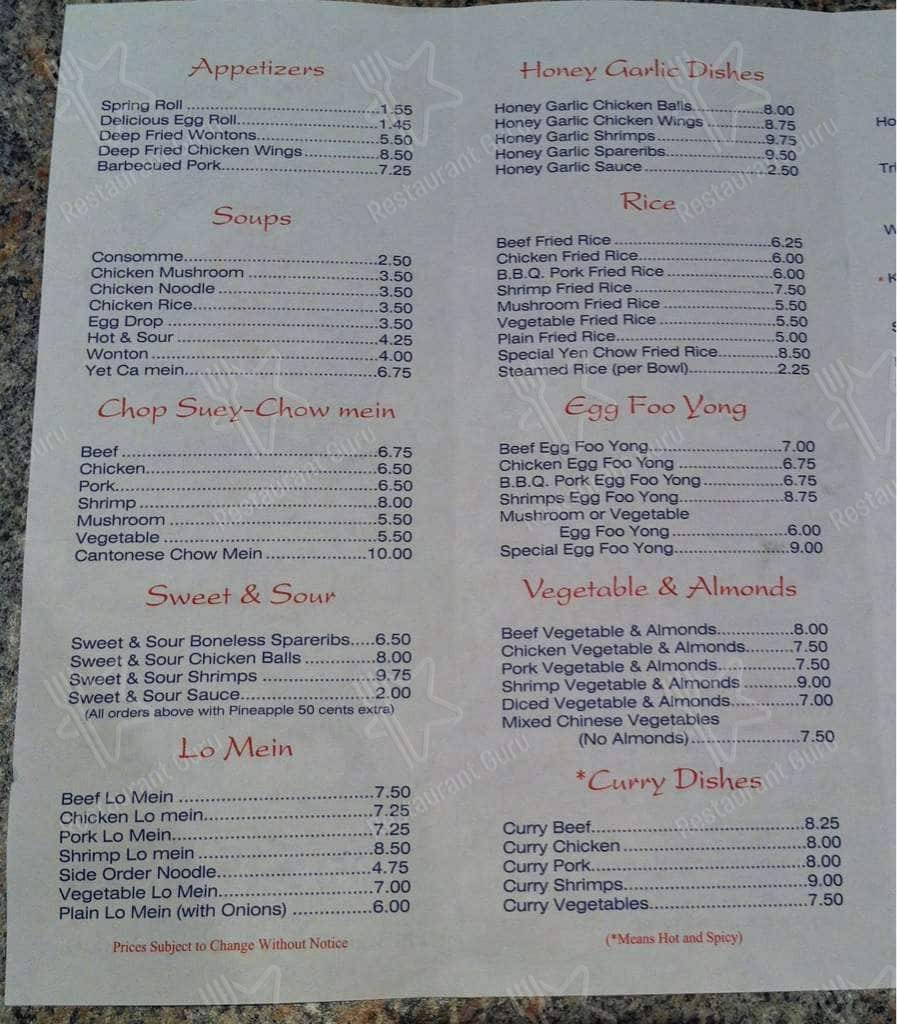 Appetizers
Spring Roll ............ 1.55
Delicious Egg Roll ............ 1.45
Deep Fried Wontons ............ 5.50
Deep Fried Chicken Wings ............ 8.50
Barbecued Pork ............ 7.25
Soups
Consomme ............ 2.50
Chicken Mushroom ............ 3.50
Chicken Noodle ............ 3.50
Chicken Rice ............ 3.50
Egg Drop ............ 3.50
Hot & Sour ............ 4.25
Wonton ............ 4.00
Yet Ca mein ............ 6.75
Chop Suey-Chow mein
Beef ............ 6.75
Chicken ............ 6.50
Pork ............ 6.50
Shrimp ............ 8.00
Mushroom ............ 5.50
Vegetable ............ 5.50
Cantonese Chow Mein ............ 10.00
Sweet & Sour
Sweet & Sour Boneless Spareribs ..... 6.50
Sweet & Sour Chicken Balls ............ 8.00
Sweet & Sour Shrimps ............ 9.75
Sweet & Sour Sauce ............ 2.00
(All orders above with Pineapple 50 cents extra)
Lo Mein
Beef Lo Mein ............ 7.50
Chicken Lo mein ............ 7.25
Pork Lo Mein ............ 7.25
Shrimp Lo mein ............ 8.50
Side Order Noodle ............ 4.75
Vegetable Lo Mein ............ 7.00
Plain Lo Mein (with Onions) ............ 6.00
Prices Subject to Change Without Notice
Honey Garlic Dishes
Honey Garlic Chicken Balls ............ 8.00
Honey Garlic Chicken Wings ............ 8.75
Honey Garlic Shrimps ............ 9.75
Honey Garlic Spareribs ............ 9.50
Honey Garlic Sauce ............ 2.50
Rice
Beef Fried Rice ............ 6.25
Chicken Fried Rice ............ 6.00
B.B.Q. Pork Fried Rice ............ 6.00
Shrimp Fried Rice ............ 7.50
Mushroom Fried Rice ............ 5.50
Vegetable Fried Rice ............ 5.50
Plain Fried Rice ............ 5.00
Special Yen Chow Fried Rice ............ 8.50
Steamed Rice (per Bowl) ............ 2.25
Egg Foo Yong
Beef Egg Foo Yong ............ 7.00
Chicken Egg Foo Yong ............ 6.75
B.B.Q. Pork Egg Foo Yong ............ 6.75
Shrimps Egg Foo Yong ............ 8.75
Mushroom or Vegetable
Egg Foo Yong ............ 6.00
Special Egg Foo Yong ............ 9.00
Vegetable & Almonds
Beef Vegetable & Almonds ............ 8.00
Chicken Vegetable & Almonds ............ 7.50
Pork Vegetable & Almonds ............ 7.50
Shrimp Vegetable & Almonds ............ 9.00
Diced Vegetable & Almonds ............ 7.00
Mixed Chinese Vegetables
(No Almonds) ............ 7.50
*Curry Dishes
Curry Beef ............ 8.25
Curry Chicken ............ 8.00
Curry Pork ............ 8.00
Curry Shrimps ............ 9.00
Curry Vegetables ............ 7.50
(*Means Hot and Spicy)
Restaurant Guru